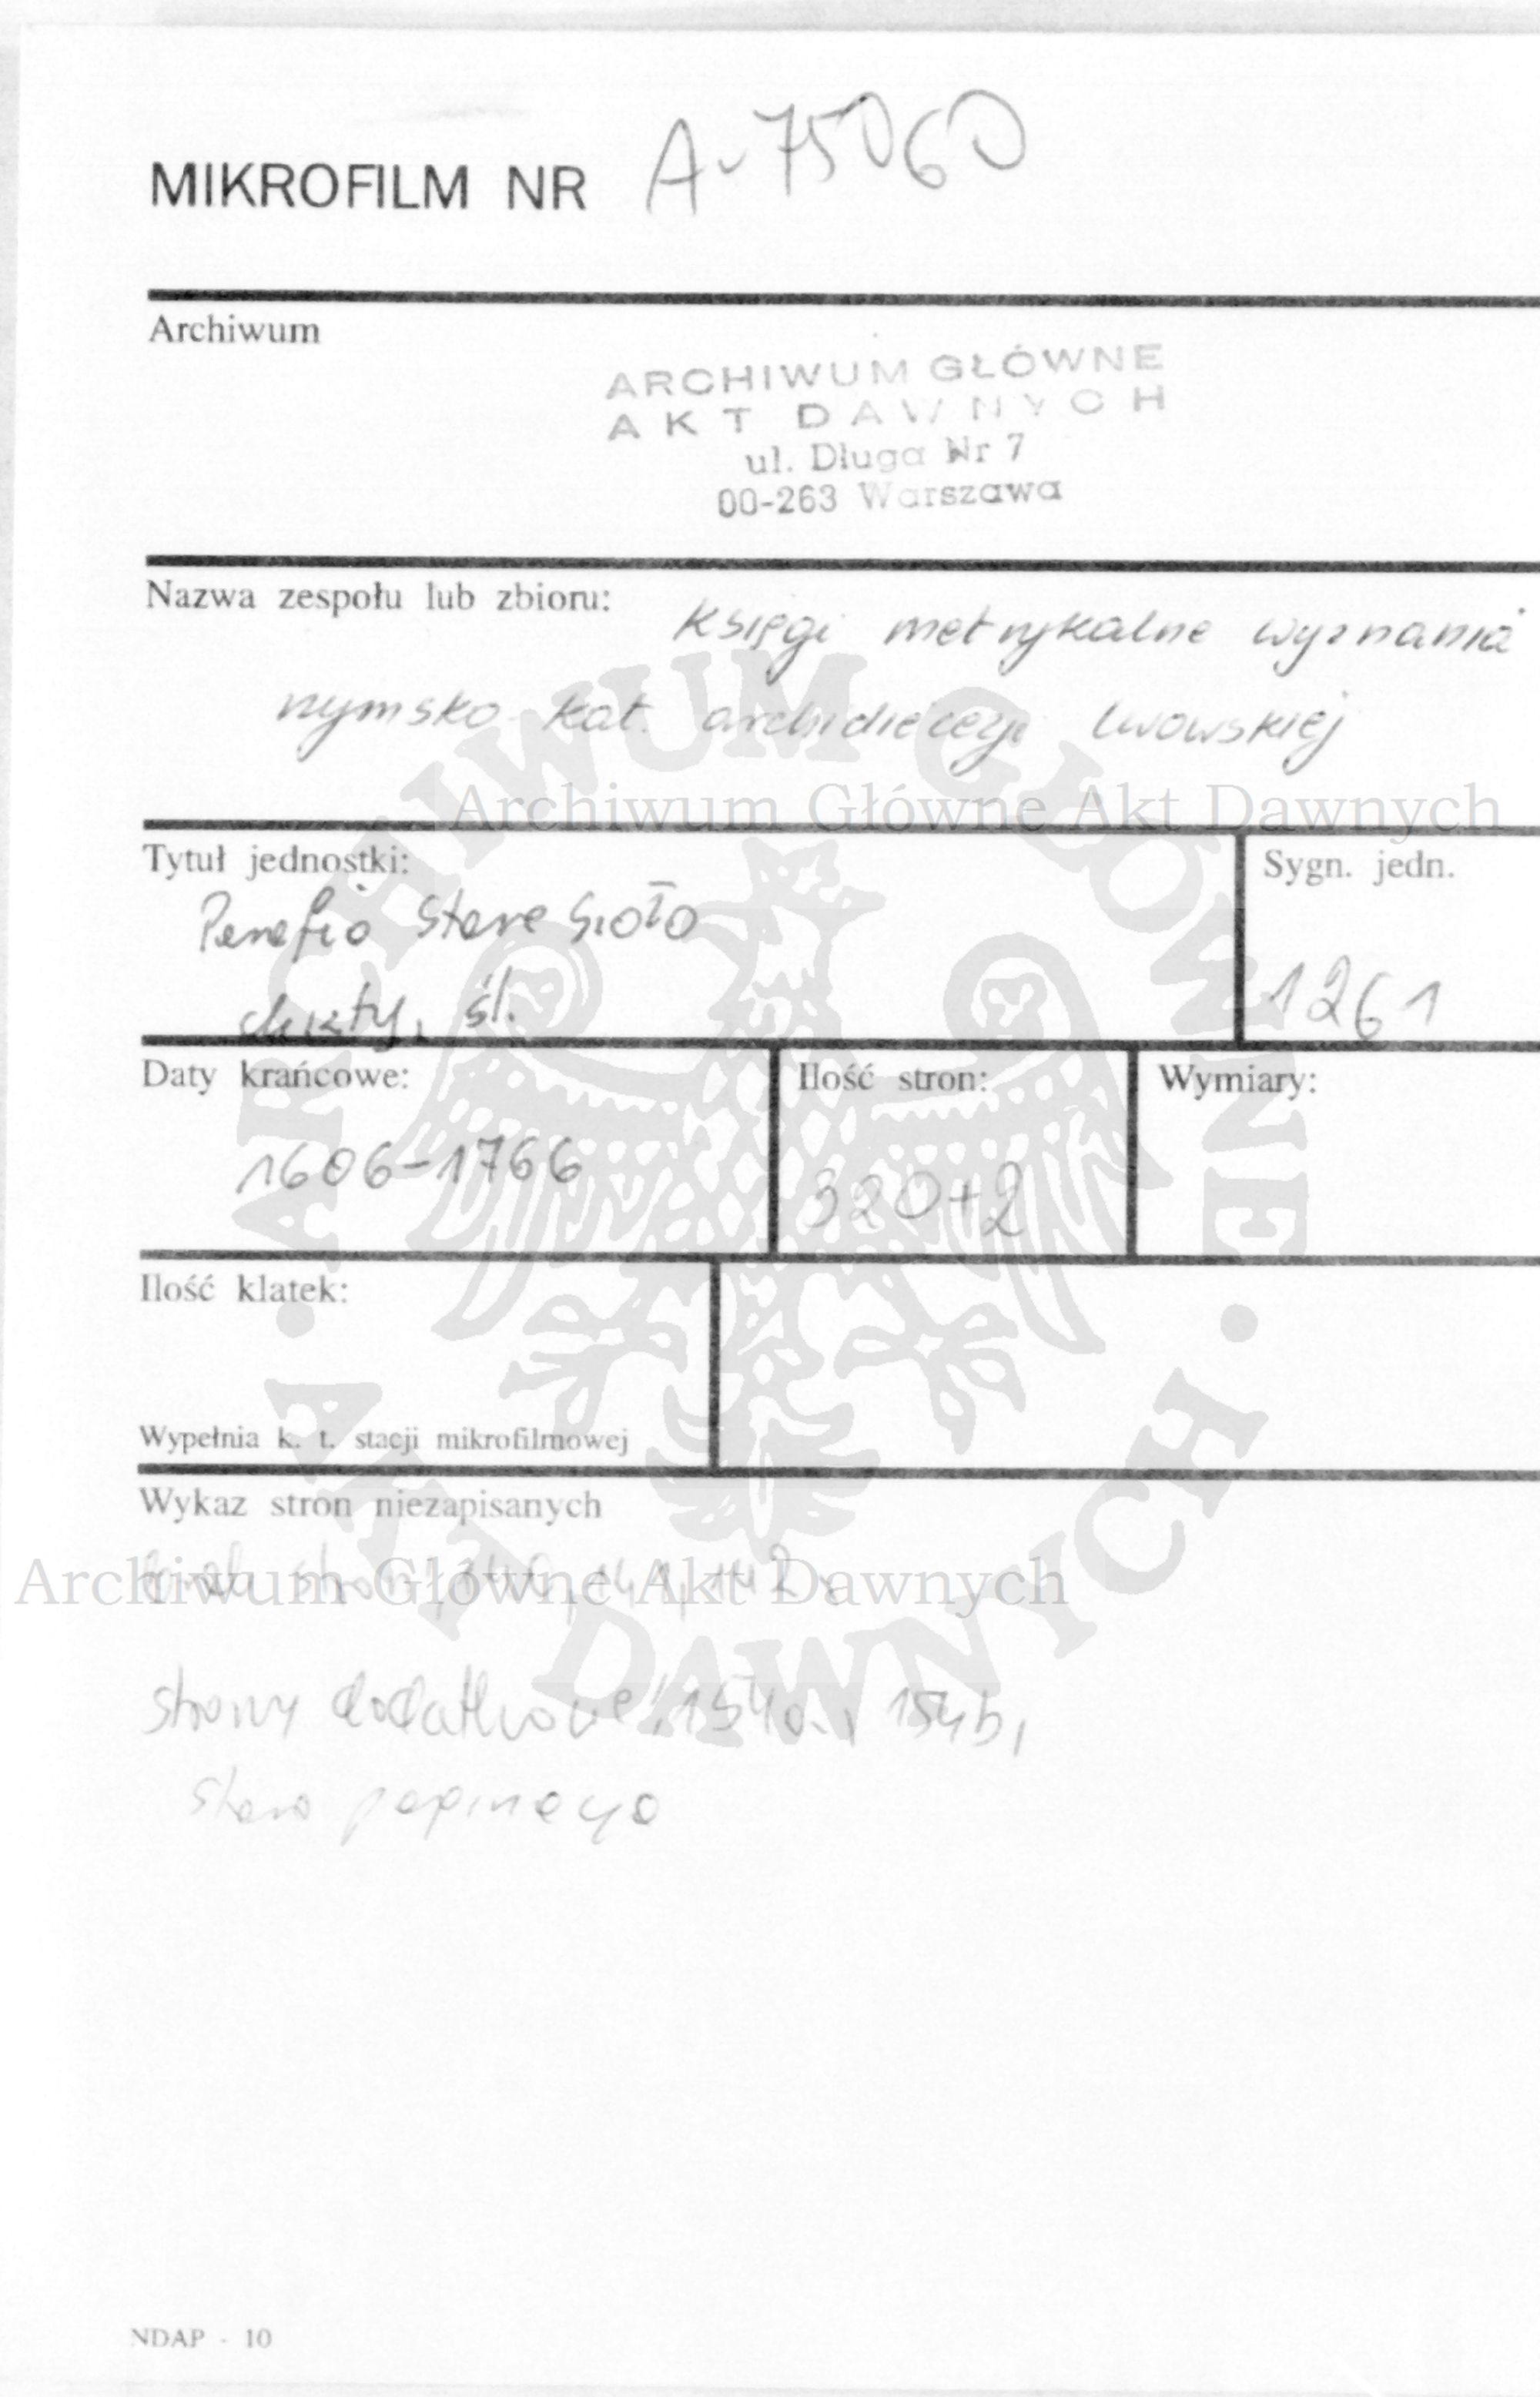 MIKROFILM NR A-75060
Archiwum
ARCHIWUM GŁÓWNE
AKT DAWNYCH
ul. Długa Nr 7
00-263 Warszawa
Nazwa zespołu lub zbioru: Księgi metrykalne wyznania
rzymsko-kat. archidiecezji lwowskiej
Archiwum Główne Akt Dawnych
Tytuł jednostki:
Parafia Stare Sioło
chrzty, śl.
Sygn. jedn.
1261
Daty krańcowe:
1606-1766
Ilość stron:
320+2
Wymiary:
Ilość klatek:
Wypełnia k. t. stacji mikrofilmowej
Wykaz stron niezapisanych
brak stron 141, 142
Archiwum Główne Akt Dawnych
strony dodatkowe 154a, 154b,
stara paginacja
ARCHIWUM GŁÓWNE
AKT DAWNYCH
NDAP - 10